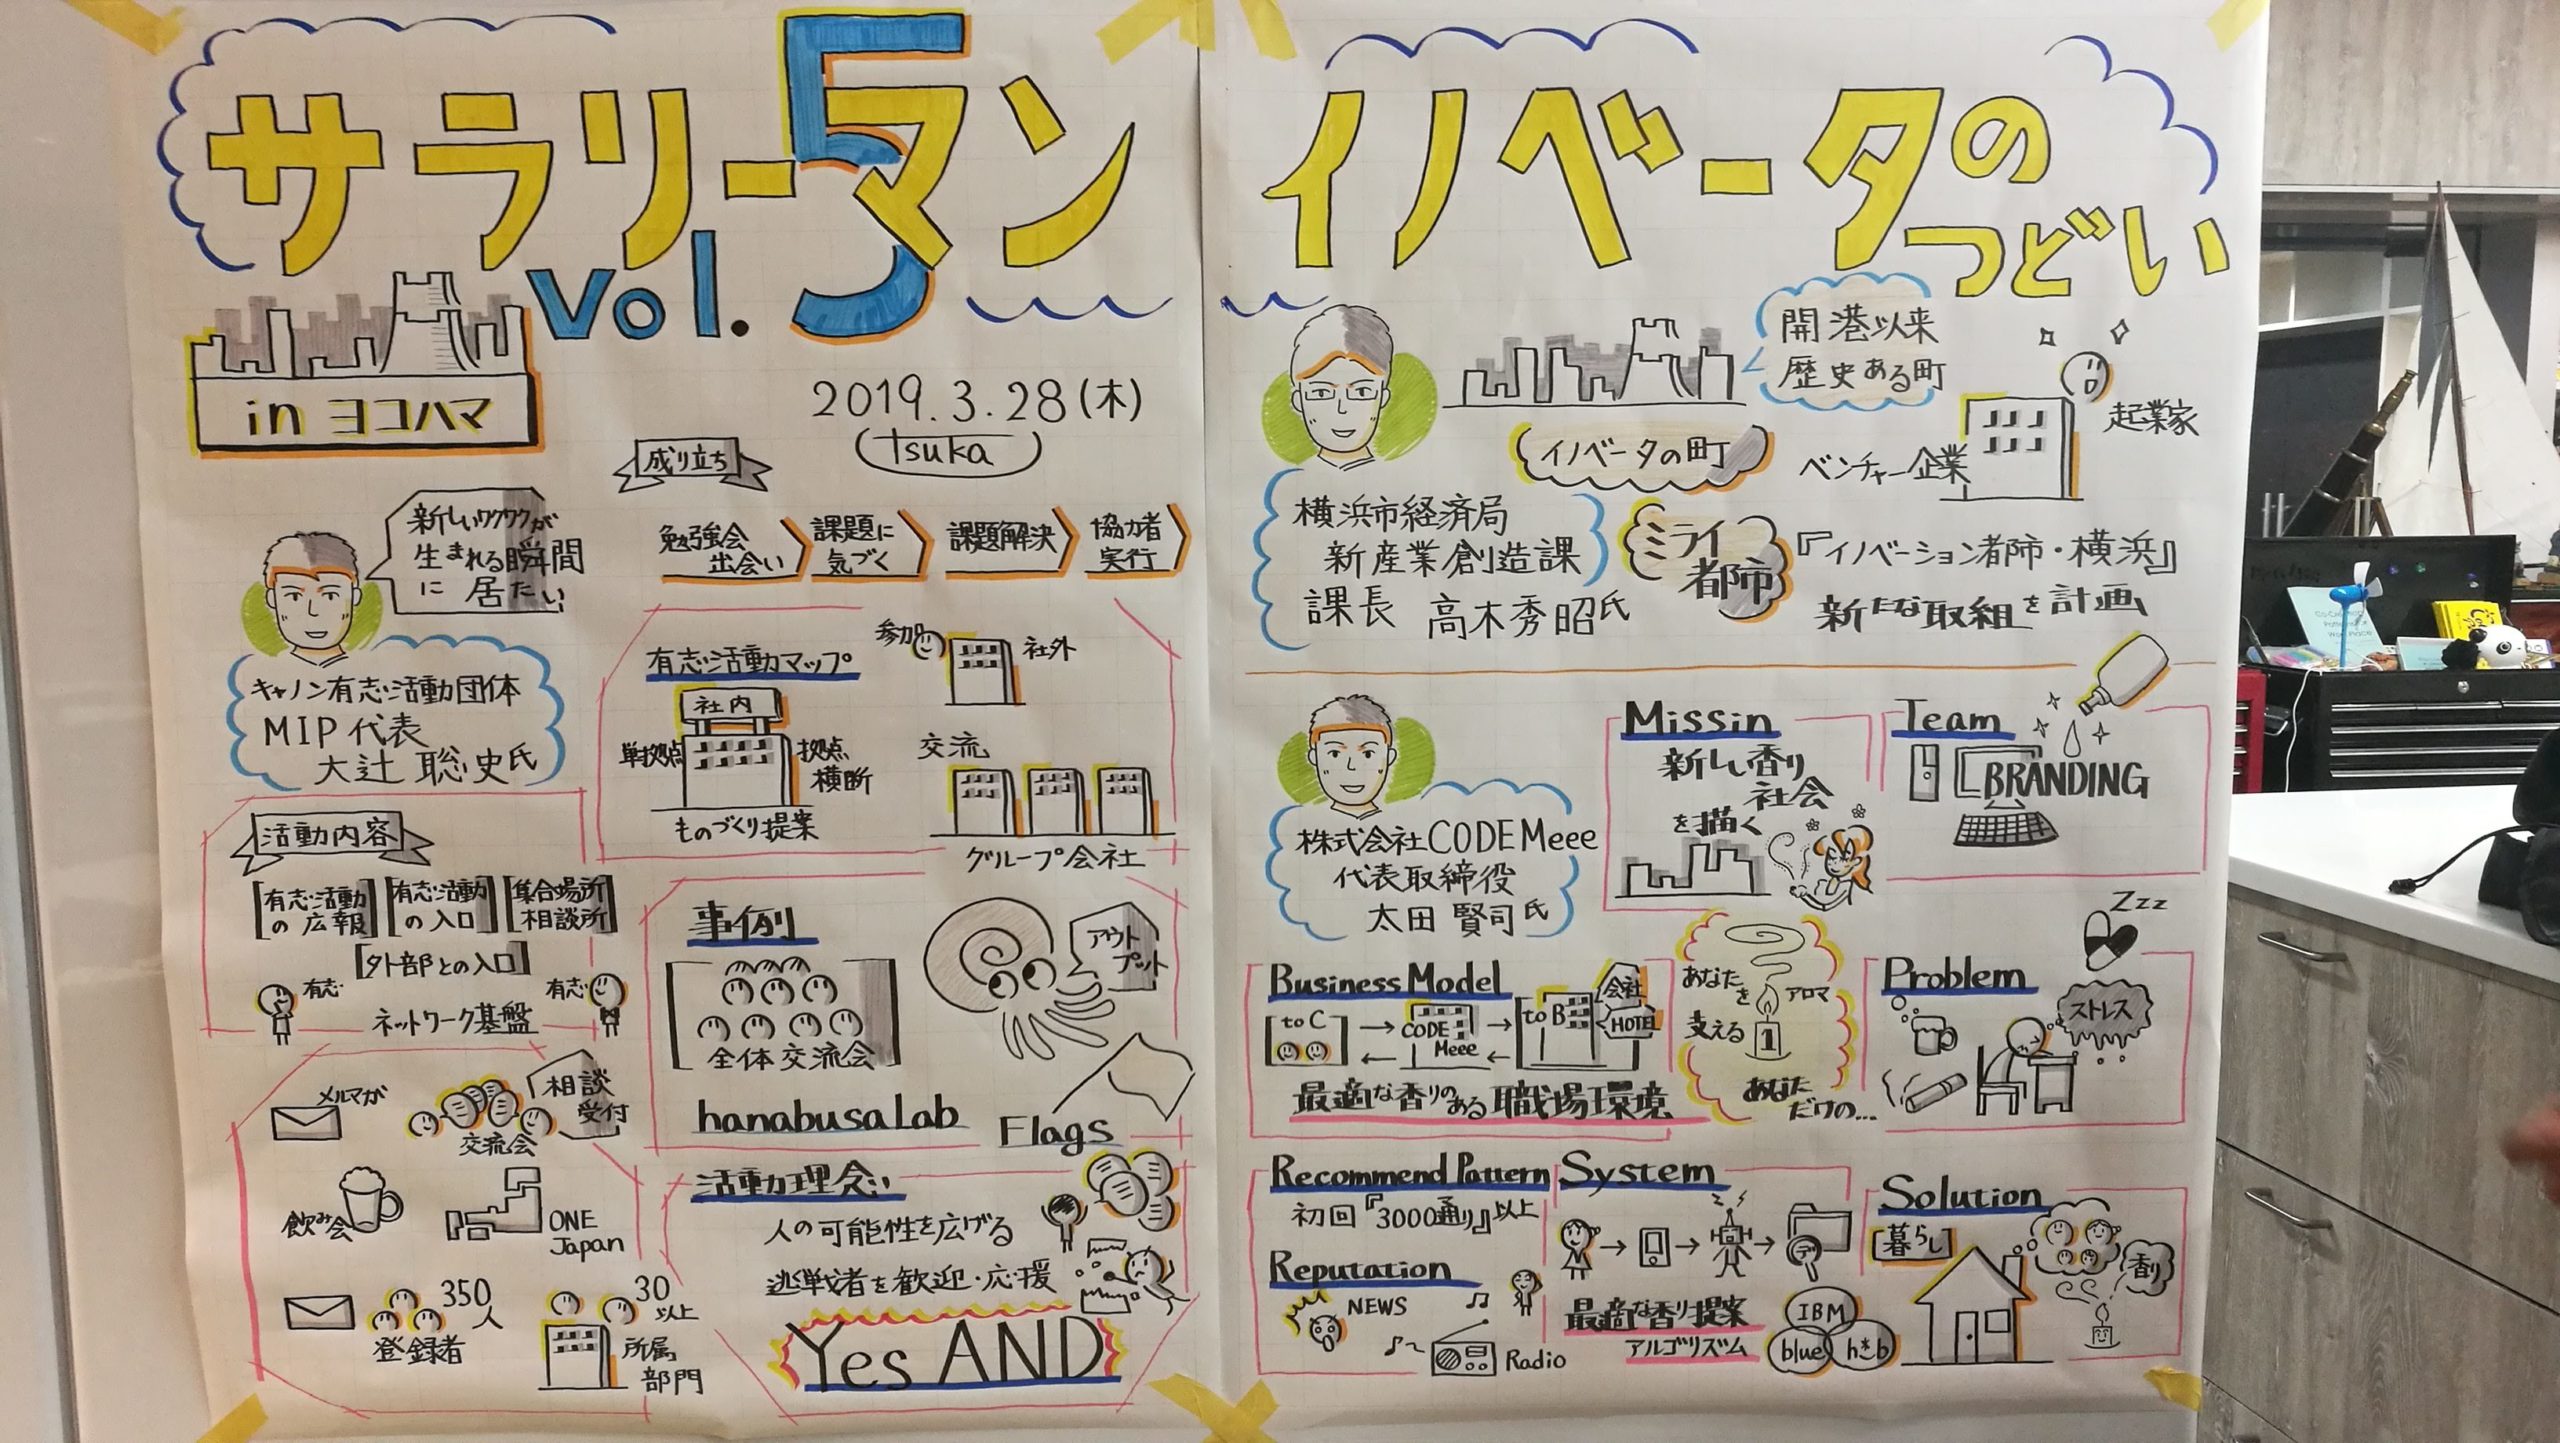 サラリーマン
Vol. 5
in ヨコハマ
2019.3.28(木)
tsuka
成り立ち
勉強会
出会い
課題に
気づく
課題解決
協力者
実行
新しいワクワクが
生まれる瞬間
に居たい
キャノン有志活動団体
MIP代表
大辻 聡史氏
有志活動マップ
社内
単拠点
拠点
横断
ものづくり提案
参加
社外
交流
グループ会社
活動内容
有志活動
の広報
有志活動
の入口
集合場所
相談所
外部との入口
有志
有志
ネットワーク基盤
事例
全体交流会
アウト
プット
hanabusaLab
Flags
メルマガ
相談
受付
交流会
飲み会
ONE
Japan
350
人
登録者
30
以上
所属
部門
活動理念
人の可能性を広げる
挑戦者を歓迎・応援
Yes AND
イノベータの
つどい
開港以来
歴史ある町
イノベータの町
ベンチャー企業
起業家
横浜市経済局
新産業創造課
課長 高木秀昭氏
ミライ
都市
『イノベーション都市・横浜』
新たな取組を計画
株式会社CODE Meee
代表取締役
太田 賢司氏
Missin
新しい香り
社会
を描く
Team
BRANDING
Business Model
to C
CODE
Meee
to B
会社
HOTEL
最適な香りのある職場環境
あなた
を
支える
アロマ
1
あなた
だけの...
Problem
Zzz
ストレス
Recommend Pattern
初回『3000通り』以上
Reputation
NEWS
Radio
System
最適な香り提案
アルゴリズム
IBM
blue
hub
Solution
暮らし
香り